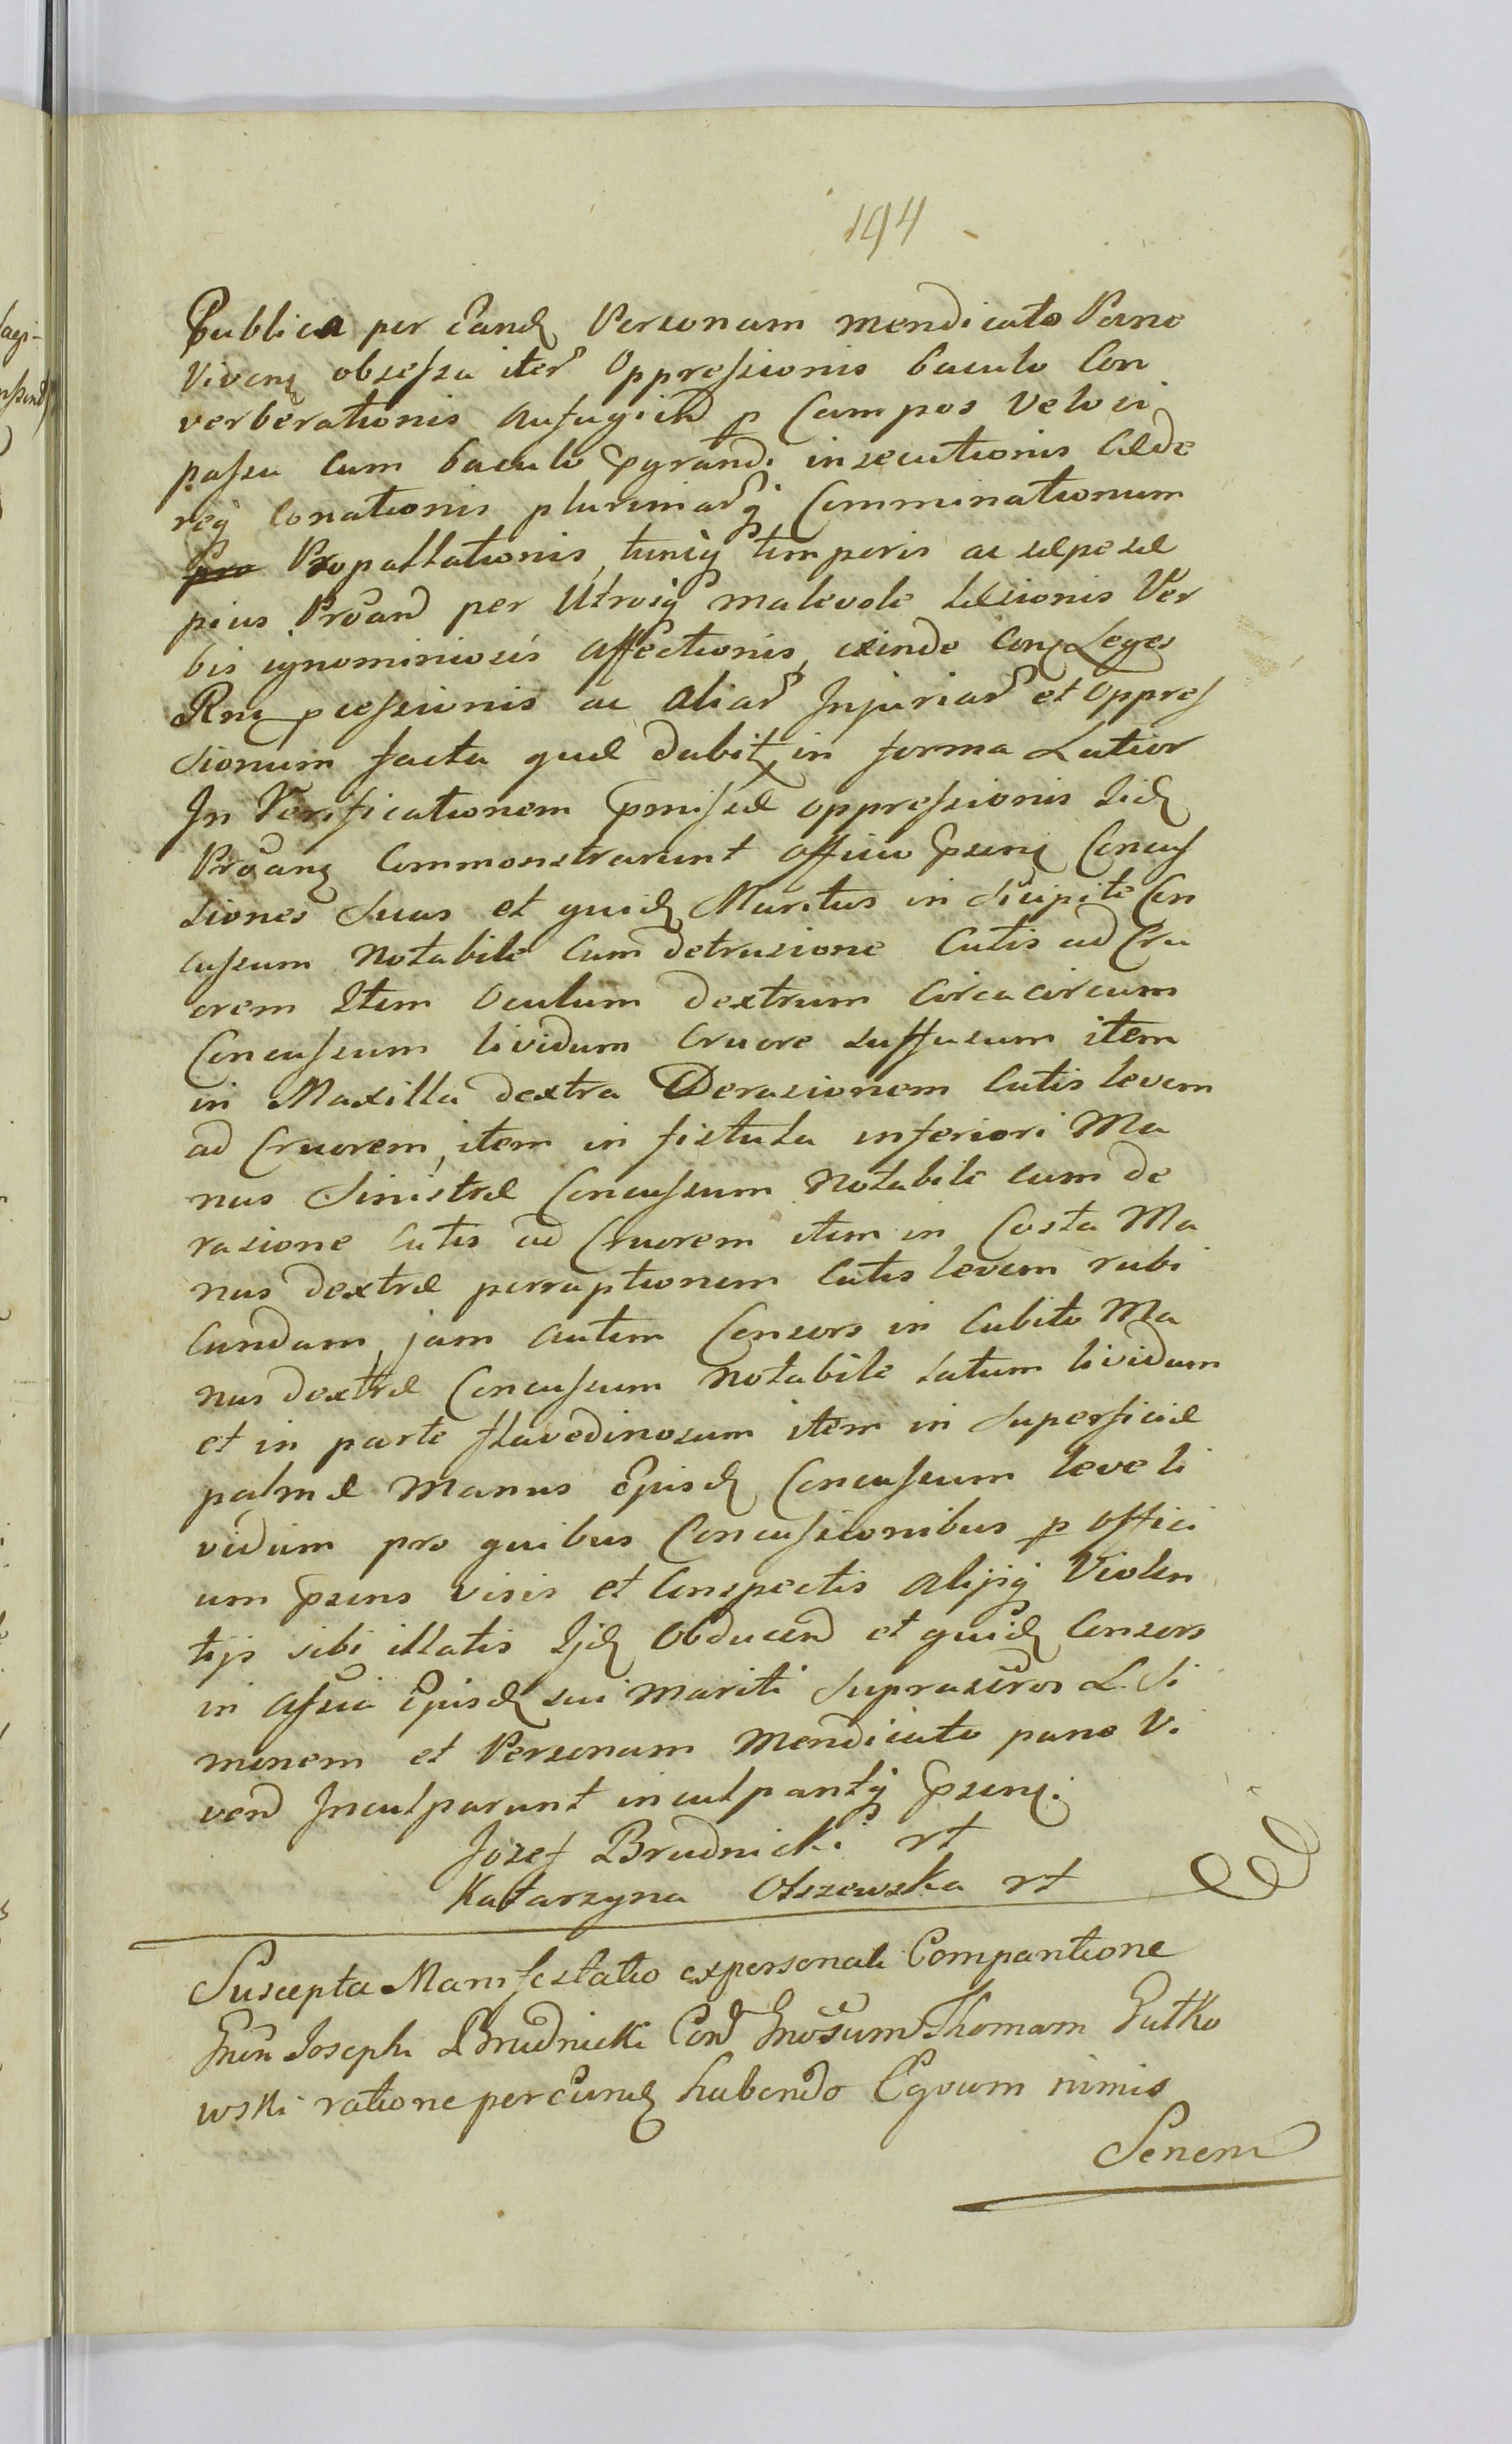 194
Publica per Eand Personam mendicato Pane
Vivenę obsessa iter Oppressionis baculo Con
verberationis aufugien p Campos Veloci
passu Cum baculo pgrandi insecutionis Cæde
req Conationis plurimarq Comminationum
pro Propallationis, tuncq temporis ac sæpe sæ
pius Proand per Utrosq malevole læsionis Ver
bis ignominiosis affectionis, exinde Con Leges
Rni pcessionis ac aliar Injuriar et Oppres
sionum facta quæ dabit in forma Latior
In Verificationem pmissæ oppressionis Iid
Proanę Commonstrarunt officio psenę Concus
siones Suas et quid Maritus in Sincipite Con
cussum Notabile Cum detrusione Cutis ad Cru
orem Item Oculum dextrum Circacircum
Concussum lividum Cruore suffusum item
in Maxilla dextra Derasionem Cutis levem
ad Cruorem, item in fistula inferiori Ma
nus Sinistræ Concussum Notabile cum de
rasione Cutis ad Cruorem item in Costa Ma
nus dextræ perruptionem Cutis levem rubi
Cundam, jam autem Consors in Cubito Ma
nus dextræ Concussum Notabile Latum lividum
et in parte flavedinosum item in Superficie
palmæ Manus Ejusd Concussum leve li
vidum pro quibus Concussionibus p offici
um psens visis et Conspectis alijsq Violen
tijs sibi illatis Ijd Obducend et quid Consors
in assia Ejusd sui mariti Suprascros L. Si
minem et Personam Mendicato pane Vi
vend Inculparunt inculpantq psenę.
Jozef Brudnicki rt
Katarzyna Olszewska rt
Suscepta Manifestatio ex personali Comparitione
Gnen Joseph Brudnicki Con Gnosum Thomam Gutko
wski ratione per eund habendo Equum nimis
Senem